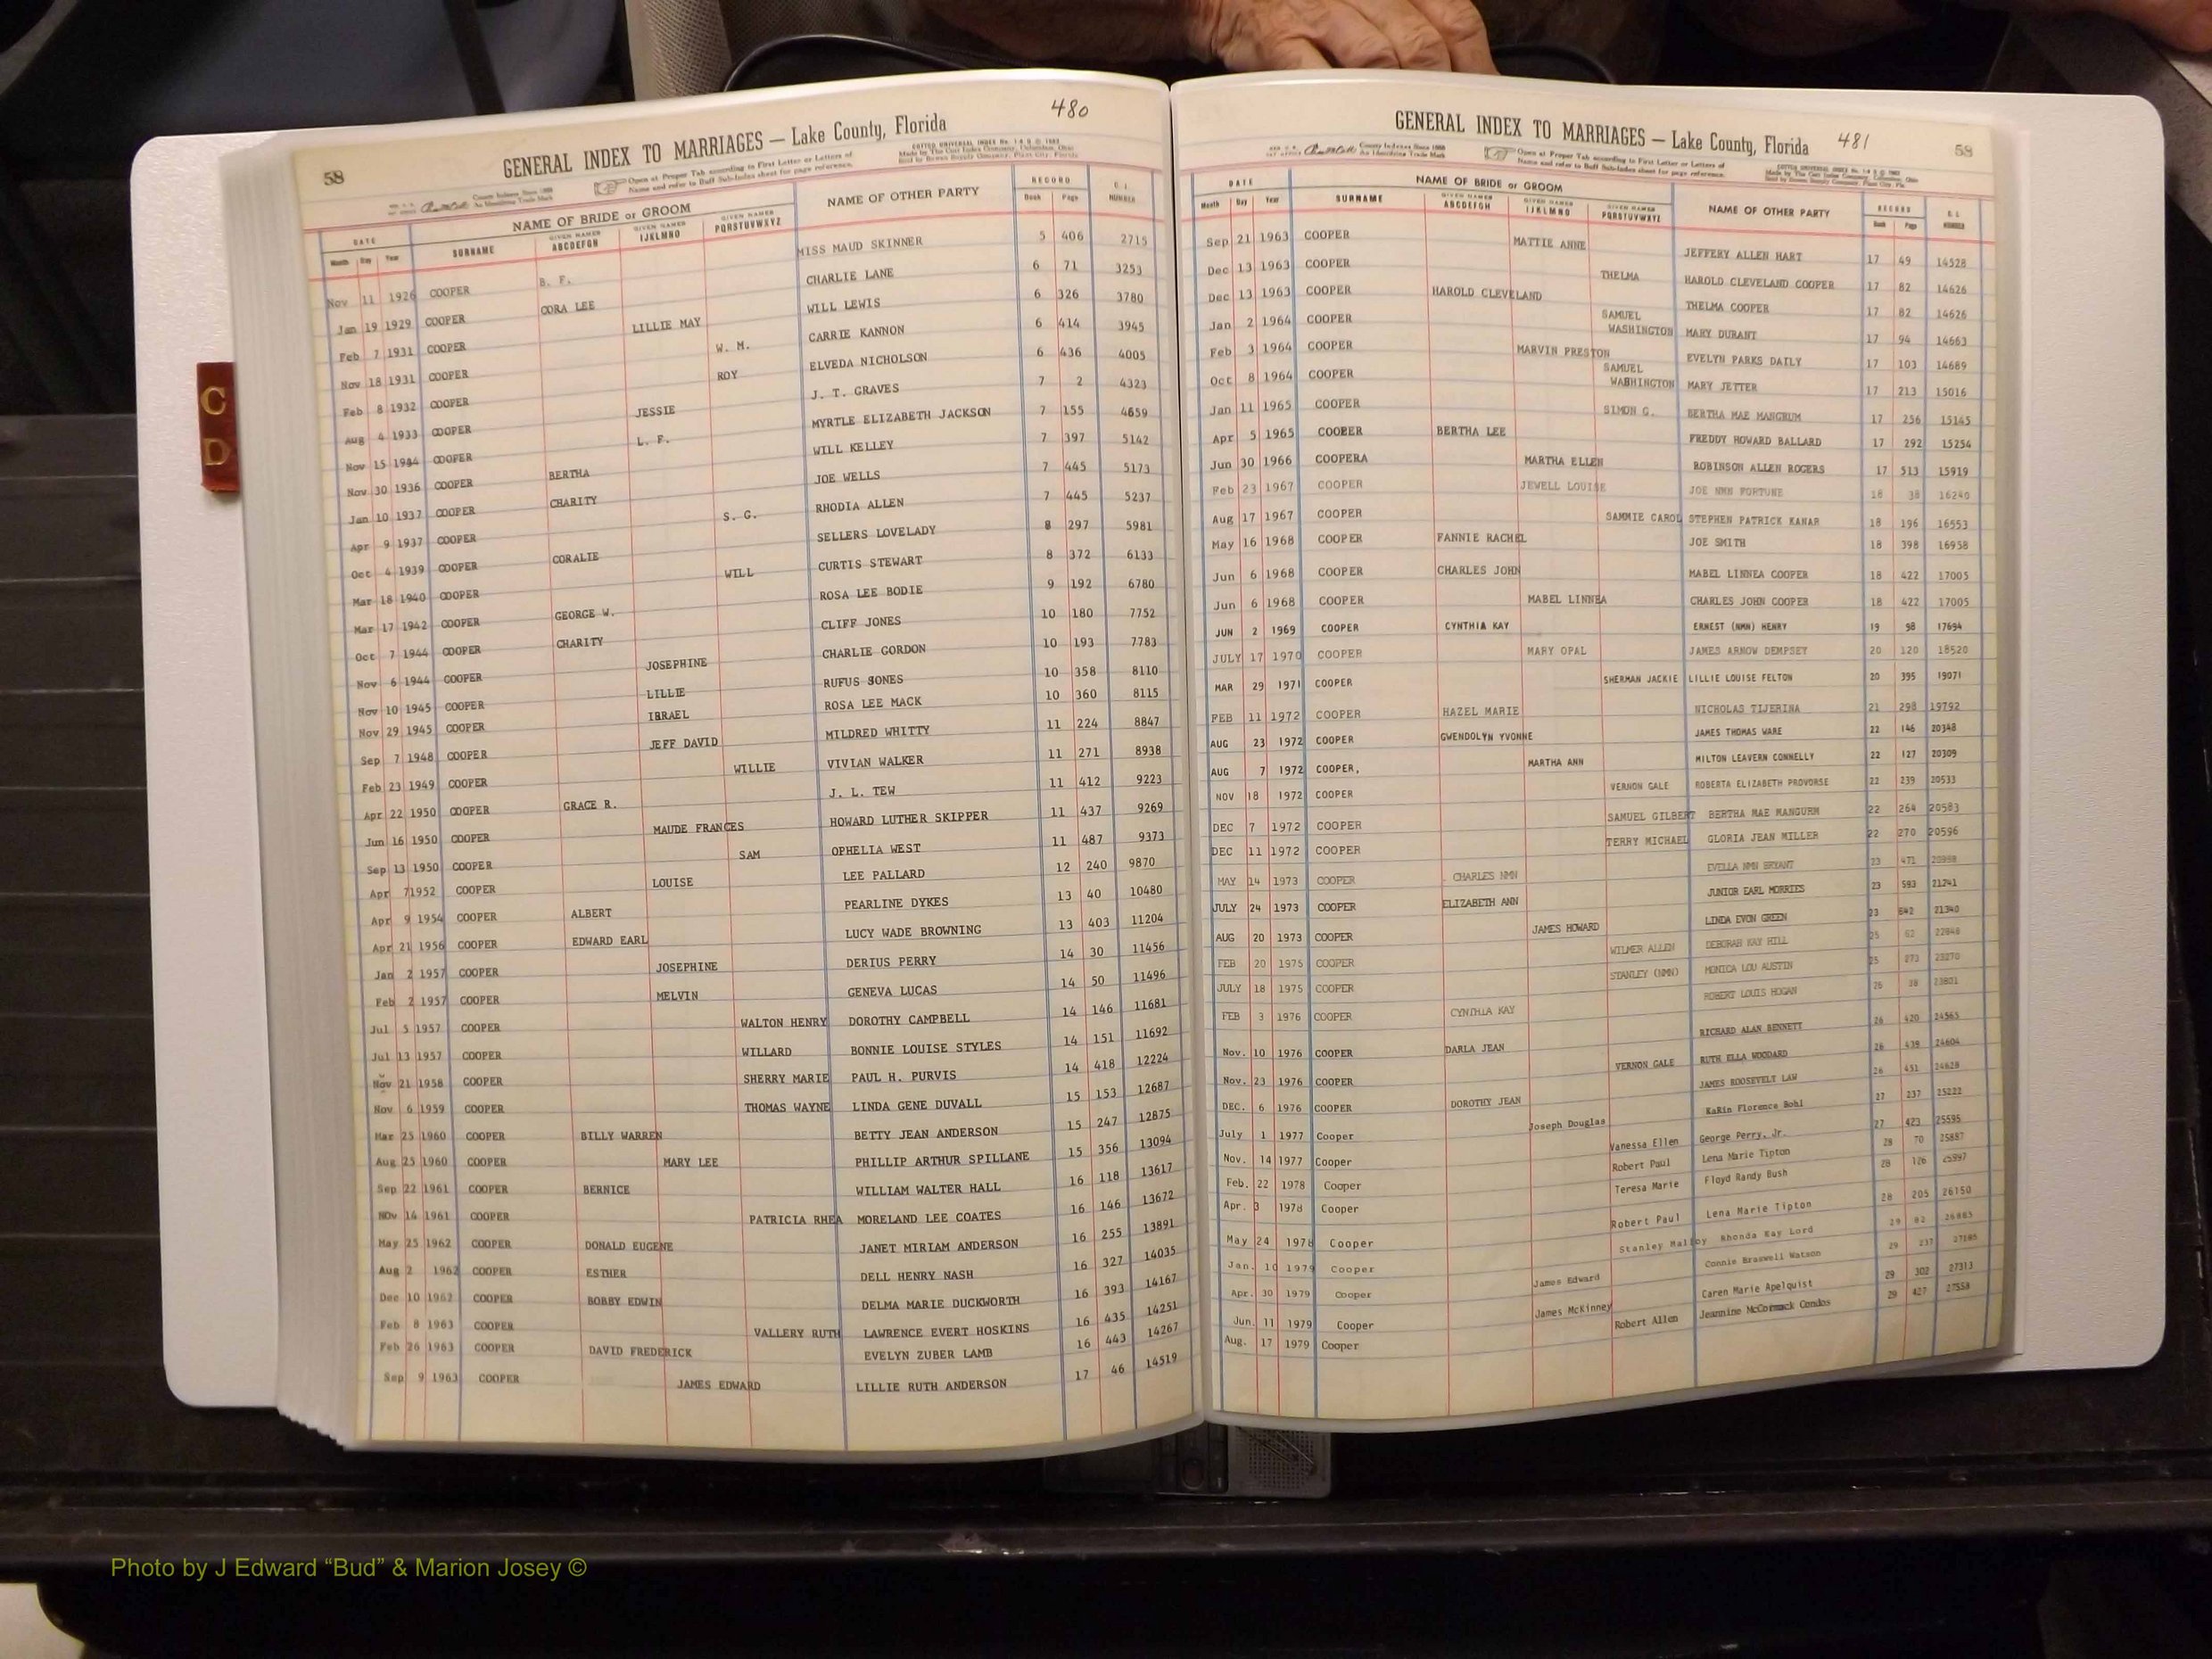 480
GENERAL INDEX TO MARRIAGES — Lake County, Florida
58
Open at Proper Tab according to First Letter or Letters of
Name and refer to Buff Sub-Index sheet for page reference.
COTT'S UNIVERSAL INDEX
DATE NAME OF BRIDE or GROOM NAME OF OTHER PARTY RECORD
Month Day Year SURNAME GIVEN NAMES ABCDEFGH GIVEN NAMES IJKLMNO GIVEN NAMES PQRSTUVWXYZ Book Page NUMBER
Nov 11 1926 COOPER B. F. MISS MAUD SKINNER 5 406 2715
Jan 19 1929 COOPER CORA LEE CHARLIE LANE 6 71 3253
Feb 7 1931 COOPER LILLIE MAY WILL LEWIS 6 326 3780
Nov 18 1931 COOPER W. M. CARRIE KANNON 6 414 3945
Feb 8 1932 COOPER ROY ELVEDA NICHOLSON 6 436 4005
Aug 4 1933 COOPER JESSIE J. T. GRAVES 7 2 4323
Nov 15 1934 COOPER L. F. MYRTLE ELIZABETH JACKSON 7 155 4659
Nov 30 1936 COOPER BERTHA WILL KELLEY 7 397 5142
Jan 10 1937 COOPER CHARITY JOE WELLS 7 445 5173
Apr 9 1937 COOPER S. G. RHODIA ALLEN 7 445 5237
Oct 4 1939 COOPER CORALIE SELLERS LOVELADY 8 297 5981
Mar 18 1940 COOPER WILL CURTIS STEWART 8 372 6133
Mar 17 1942 COOPER GEORGE W. ROSA LEE BODIE 9 192 6780
Oct 7 1944 COOPER CHARITY CLIFF JONES 10 180 7752
Nov 6 1944 COOPER JOSEPHINE CHARLIE GORDON 10 193 7783
Nov 10 1945 COOPER LILLIE RUFUS JONES 10 358 8110
Nov 29 1945 COOPER ISRAEL ROSA LEE MACK 10 360 8115
Sep 7 1948 COOPER JEFF DAVID MILDRED WHITTY 11 224 8847
Feb 23 1949 COOPER WILLIE VIVIAN WALKER 11 271 8938
Apr 22 1950 COOPER GRACE R. J. L. TEW 11 412 9223
Jun 16 1950 COOPER MAUDE FRANCES HOWARD LUTHER SKIPPER 11 437 9269
Sep 13 1950 COOPER SAM OPHELIA WEST 11 487 9373
Apr 7 1952 COOPER LOUISE LEE PALLARD 12 240 9870
Apr 9 1954 COOPER ALBERT PEARLINE DYKES 13 40 10480
Apr 21 1956 COOPER EDWARD EARL LUCY WADE BROWNING 13 403 11204
Jan 2 1957 COOPER JOSEPHINE DERIUS PERRY 14 30 11456
Feb 2 1957 COOPER MELVIN GENEVA LUCAS 14 50 11496
Jul 5 1957 COOPER WALTON HENRY DOROTHY CAMPBELL 14 146 11681
Jul 13 1957 COOPER WILLARD BONNIE LOUISE STYLES 14 151 11692
Nov 21 1958 COOPER SHERRY MARIE PAUL H. PURVIS 14 418 12224
Nov 6 1959 COOPER THOMAS WAYNE LINDA GENE DUVALL 15 153 12687
Mar 25 1960 COOPER BILLY WARREN BETTY JEAN ANDERSON 15 247 12875
Aug 25 1960 COOPER MARY LEE PHILLIP ARTHUR SPILLANE 15 356 13094
Sep 22 1961 COOPER BERNICE WILLIAM WALTER HALL 16 118 13617
NOv 14 1961 COOPER PATRICIA RHEA MORELAND LEE COATES 16 146 13672
May 25 1962 COOPER DONALD EUGENE JANET MIRIAM ANDERSON 16 255 13891
Aug 2 1962 COOPER ESTHER DELL HENRY NASH 16 327 14035
Dec 10 1962 COOPER BOBBY EDWIN DELMA MARIE DUCKWORTH 16 393 14167
Feb 8 1963 COOPER VALLERY RUTH LAWRENCE EVERT HOSKINS 16 435 14251
Feb 26 1963 COOPER DAVID FREDERICK EVELYN ZUBER LAMB 16 443 14267
Sep 9 1963 COOPER JAMES EDWARD LILLIE RUTH ANDERSON 17 46 14519
GENERAL INDEX TO MARRIAGES — Lake County, Florida 481
58
Open at Proper Tab according to First Letter or Letters of
Name and refer to Buff Sub-Index sheet for page reference.
DATE NAME OF BRIDE or GROOM NAME OF OTHER PARTY RECORD
Month Day Year SURNAME GIVEN NAMES ABCDEFGH GIVEN NAMES IJKLMNO GIVEN NAMES PQRSTUVWXYZ Book Page NUMBER
Sep 21 1963 COOPER MATTIE ANNE JEFFERY ALLEN HART 17 49 14528
Dec 13 1963 COOPER THELMA HAROLD CLEVELAND COOPER 17 82 14626
Dec 13 1963 COOPER HAROLD CLEVELAND THELMA COOPER 17 82 14626
Jan 2 1964 COOPER SAMUEL WASHINGTON MARY DURANT 17 94 14663
Feb 3 1964 COOPER MARVIN PRESTON EVELYN PARKS DAILY 17 103 14689
Oct 8 1964 COOPER SAMUEL WASHINGTON MARY JETTER 17 213 15016
Jan 11 1965 COOPER SIMON G. BERTHA MAE MANGRUM 17 256 15145
Apr 5 1965 COOBER BERTHA LEE FREDDY HOWARD BALLARD 17 292 15254
Jun 30 1966 COOPERA MARTHA ELLEN ROBINSON ALLEN ROGERS 17 513 15919
Feb 23 1967 COOPER JEWELL LOUISE JOE NMN FORTUNE 18 38 16240
Aug 17 1967 COOPER SAMMIE CAROL STEPHEN PATRICK KANAR 18 196 16553
May 16 1968 COOPER FANNIE RACHEL JOE SMITH 18 398 16958
Jun 6 1968 COOPER CHARLES JOHN MABEL LINNEA COOPER 18 422 17005
Jun 6 1968 COOPER MABEL LINNEA CHARLES JOHN COOPER 18 422 17005
JUN 2 1969 COOPER CYNTHIA KAY ERNEST (NMN) HENRY 19 98 17694
JULY 17 1970 COOPER MARY OPAL JAMES ARNOW DEMPSEY 20 120 18520
MAR 29 1971 COOPER SHERMAN JACKIE LILLIE LOUISE FELTON 20 395 19071
FEB 11 1972 COOPER HAZEL MARIE NICHOLAS TIJERINA 21 298 19792
AUG 23 1972 COOPER GWENDOLYN YVONNE JAMES THOMAS WARE 22 146 20348
AUG 7 1972 COOPER, MARTHA ANN MILTON LEAVERN CONNELLY 22 127 20309
NOV 18 1972 COOPER VERNON GALE ROBERTA ELIZABETH PROVORSE 22 239 20533
DEC 7 1972 COOPER SAMUEL GILBERT BERTHA MAE MANGURM 22 264 20583
DEC 11 1972 COOPER TERRY MICHAEL GLORIA JEAN MILLER 22 270 20596
MAY 14 1973 COOPER CHARLES NMN EVELLA NMN BRYANT 23 471
JULY 24 1973 COOPER ELIZABETH ANN JUNIOR EARL MORRIES 23 593 21241
AUG 20 1973 COOPER JAMES HOWARD LINDA EVON GREEN 23 642 21340
FEB 20 1975 COOPER WILMER ALLEN DEBORAH KAY HILL 25 62 22846
JULY 18 1975 COOPER STANLEY (NMN) MONICA LOU AUSTIN 25 273 23270
FEB 3 1976 COOPER CYNTHIA KAY ROBERT LOUIS HOGAN 26 38 23801
Nov. 10 1976 COOPER DARLA JEAN RICHARD ALAN BENNETT 26 420 24565
Nov. 23 1976 COOPER VERNON GALE RUTH ELLA WOODARD 26 439 24604
DEC. 6 1976 COOPER DOROTHY JEAN JAMES ROOSEVELT LAW 26 451 24628
July 1 1977 Cooper Joseph Douglas KaRin Florence Bohl 27 237 25222
Nov. 14 1977 Cooper Vanessa Ellen George Perry, Jr. 27 423 25595
Feb. 22 1978 Cooper Robert Paul Lena Marie Tipton 28 70 25887
Apr. 3 1978 Cooper Teresa Marie Floyd Randy Bush 28 126 25997
May 24 1978 Cooper Robert Paul Lena Marie Tipton 28 205 26150
Jan. 10 1979 Cooper Stanley Malloy Rhonda Kay Lord 29 82
Apr. 30 1979 Cooper James Edward Connie Braswell Watson 29 237
Jun. 11 1979 Cooper James McKinney Caren Marie Apelquist 29 302 27313
Aug. 17 1979 Cooper Robert Allen Jeannine McCormack Condos 29 427 27558
C
D
Photo by J Edward “Bud” & Marion Josey ©